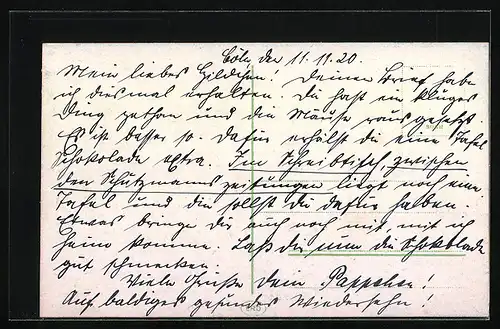 Cöln, den 11.11.20.
Mein liebes Hildchen! Deinen Brief habe
ich diesmal erhalten. Du hast ein kluges
Ding gethan und die Mäuse raus gesetzt.
Es ist besser so. Dafür erhälst du eine Tafel
Schokolade extra. Im Schreibtisch zwischen
den Schutzmannszeitungen liegt noch eine
Tafel und die sollst du dafür haben.
Etwas bringe dir auch noch mit, wenn ich
heim komme. Laß dir nun die Schoklade
gut schmecken.
Viele Grüße dein Pappchen!
Auf baldiges gesundes Wiedersehn!